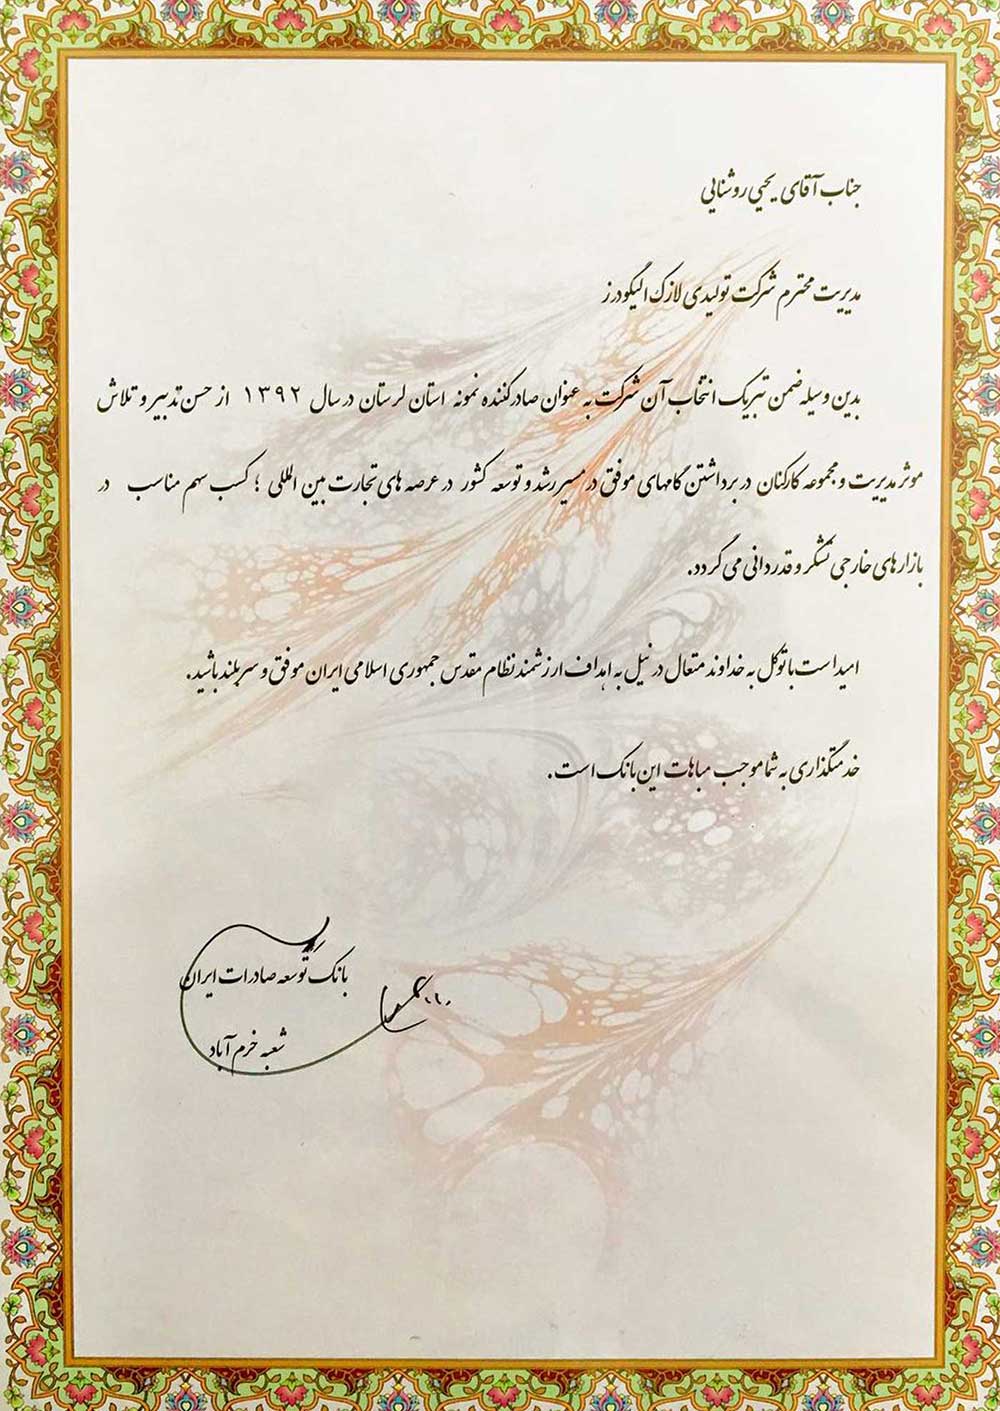 جناب آقای یحیی روشنایی
مدیریت محترم شرکت تولیدی لازک الیگودرز
بدین وسیله ضمن تبریک انتخاب آن شرکت به عنوان صادرکننده نمونه استان لرستان در سال ۱۳۹۲ از حسن تدبیر و تلاش
موثر مدیریت و مجموعه کارکنان در برداشتن گامهای موفق در مسیر رشد و توسعه کشور در عرصه های تجارت بین المللی ؛ کسب سهم مناسب در
بازارهای خارجی تشکر و قدردانی می گردد.
امید است با توکل به خداوند متعال در نیل به اهداف ارزشمند نظام مقدس جمهوری اسلامی ایران موفق و سربلند باشید.
خدمتگذاری به شما موجب مباهات این بانک است.
بانک توسعه صادرات ایران
شعبه خرم آباد